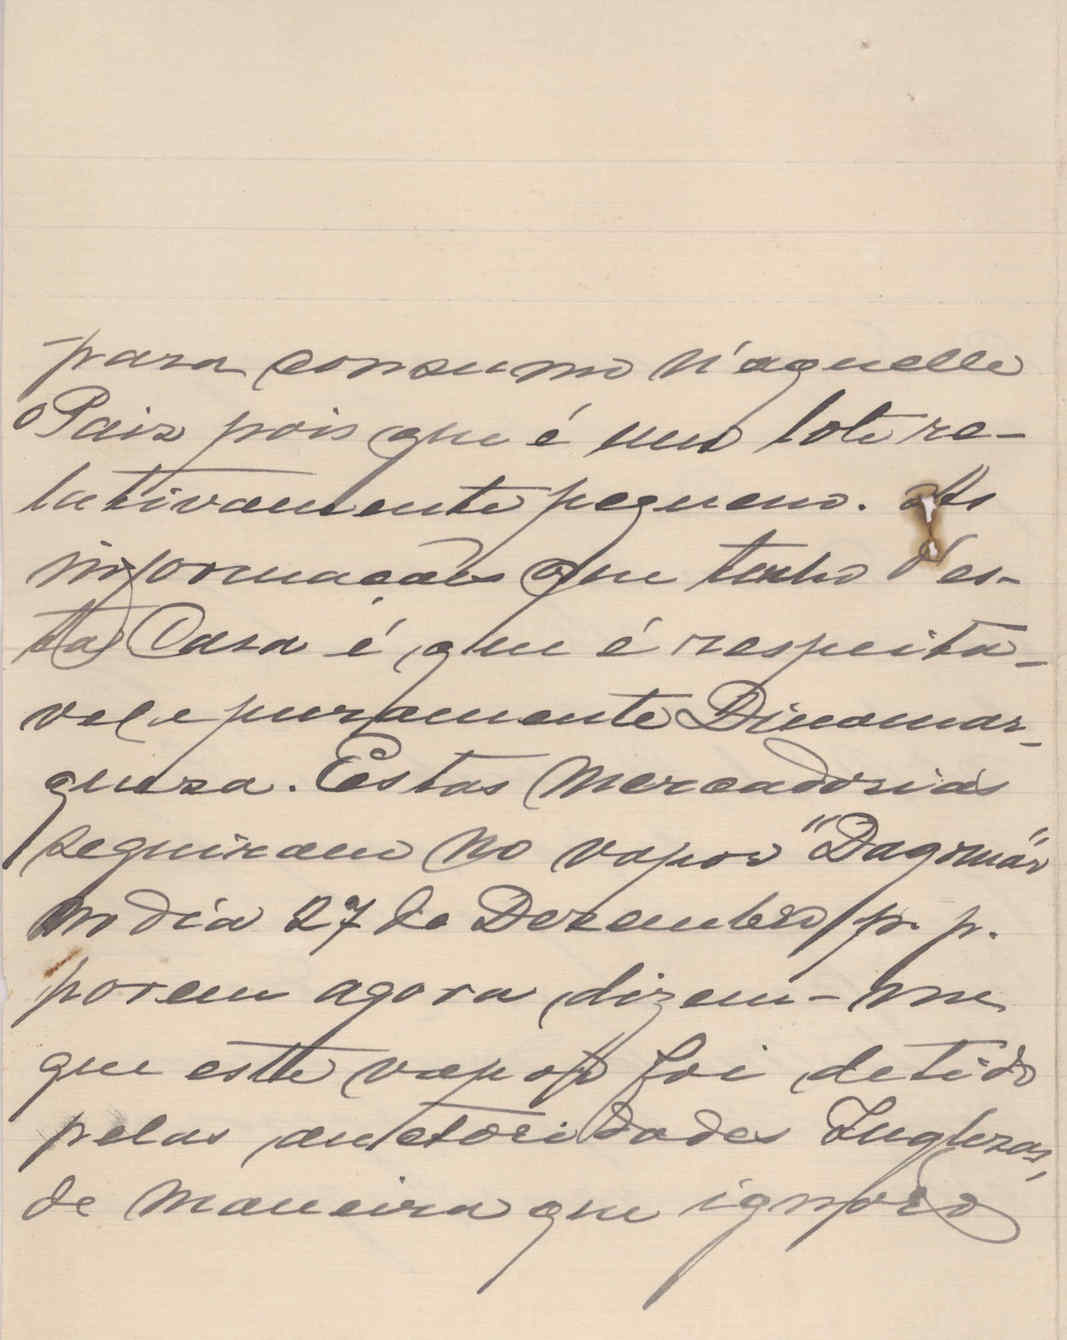 para consumo n'aquelle
Paiz pois que é um lote re-
lativamente pequeno. As
informações que tenho d'es-
ta Casa é que é respeita-
vel e puramente Dinamar-
queza. Estas mercadorias
seguiram no vapor "Dagmar"
no dia 27 de Dezembro p. p.
porem agora dizem-me
que este vapor foi detido
pelas auctoridades Inglezas,
de maneira que ignoro